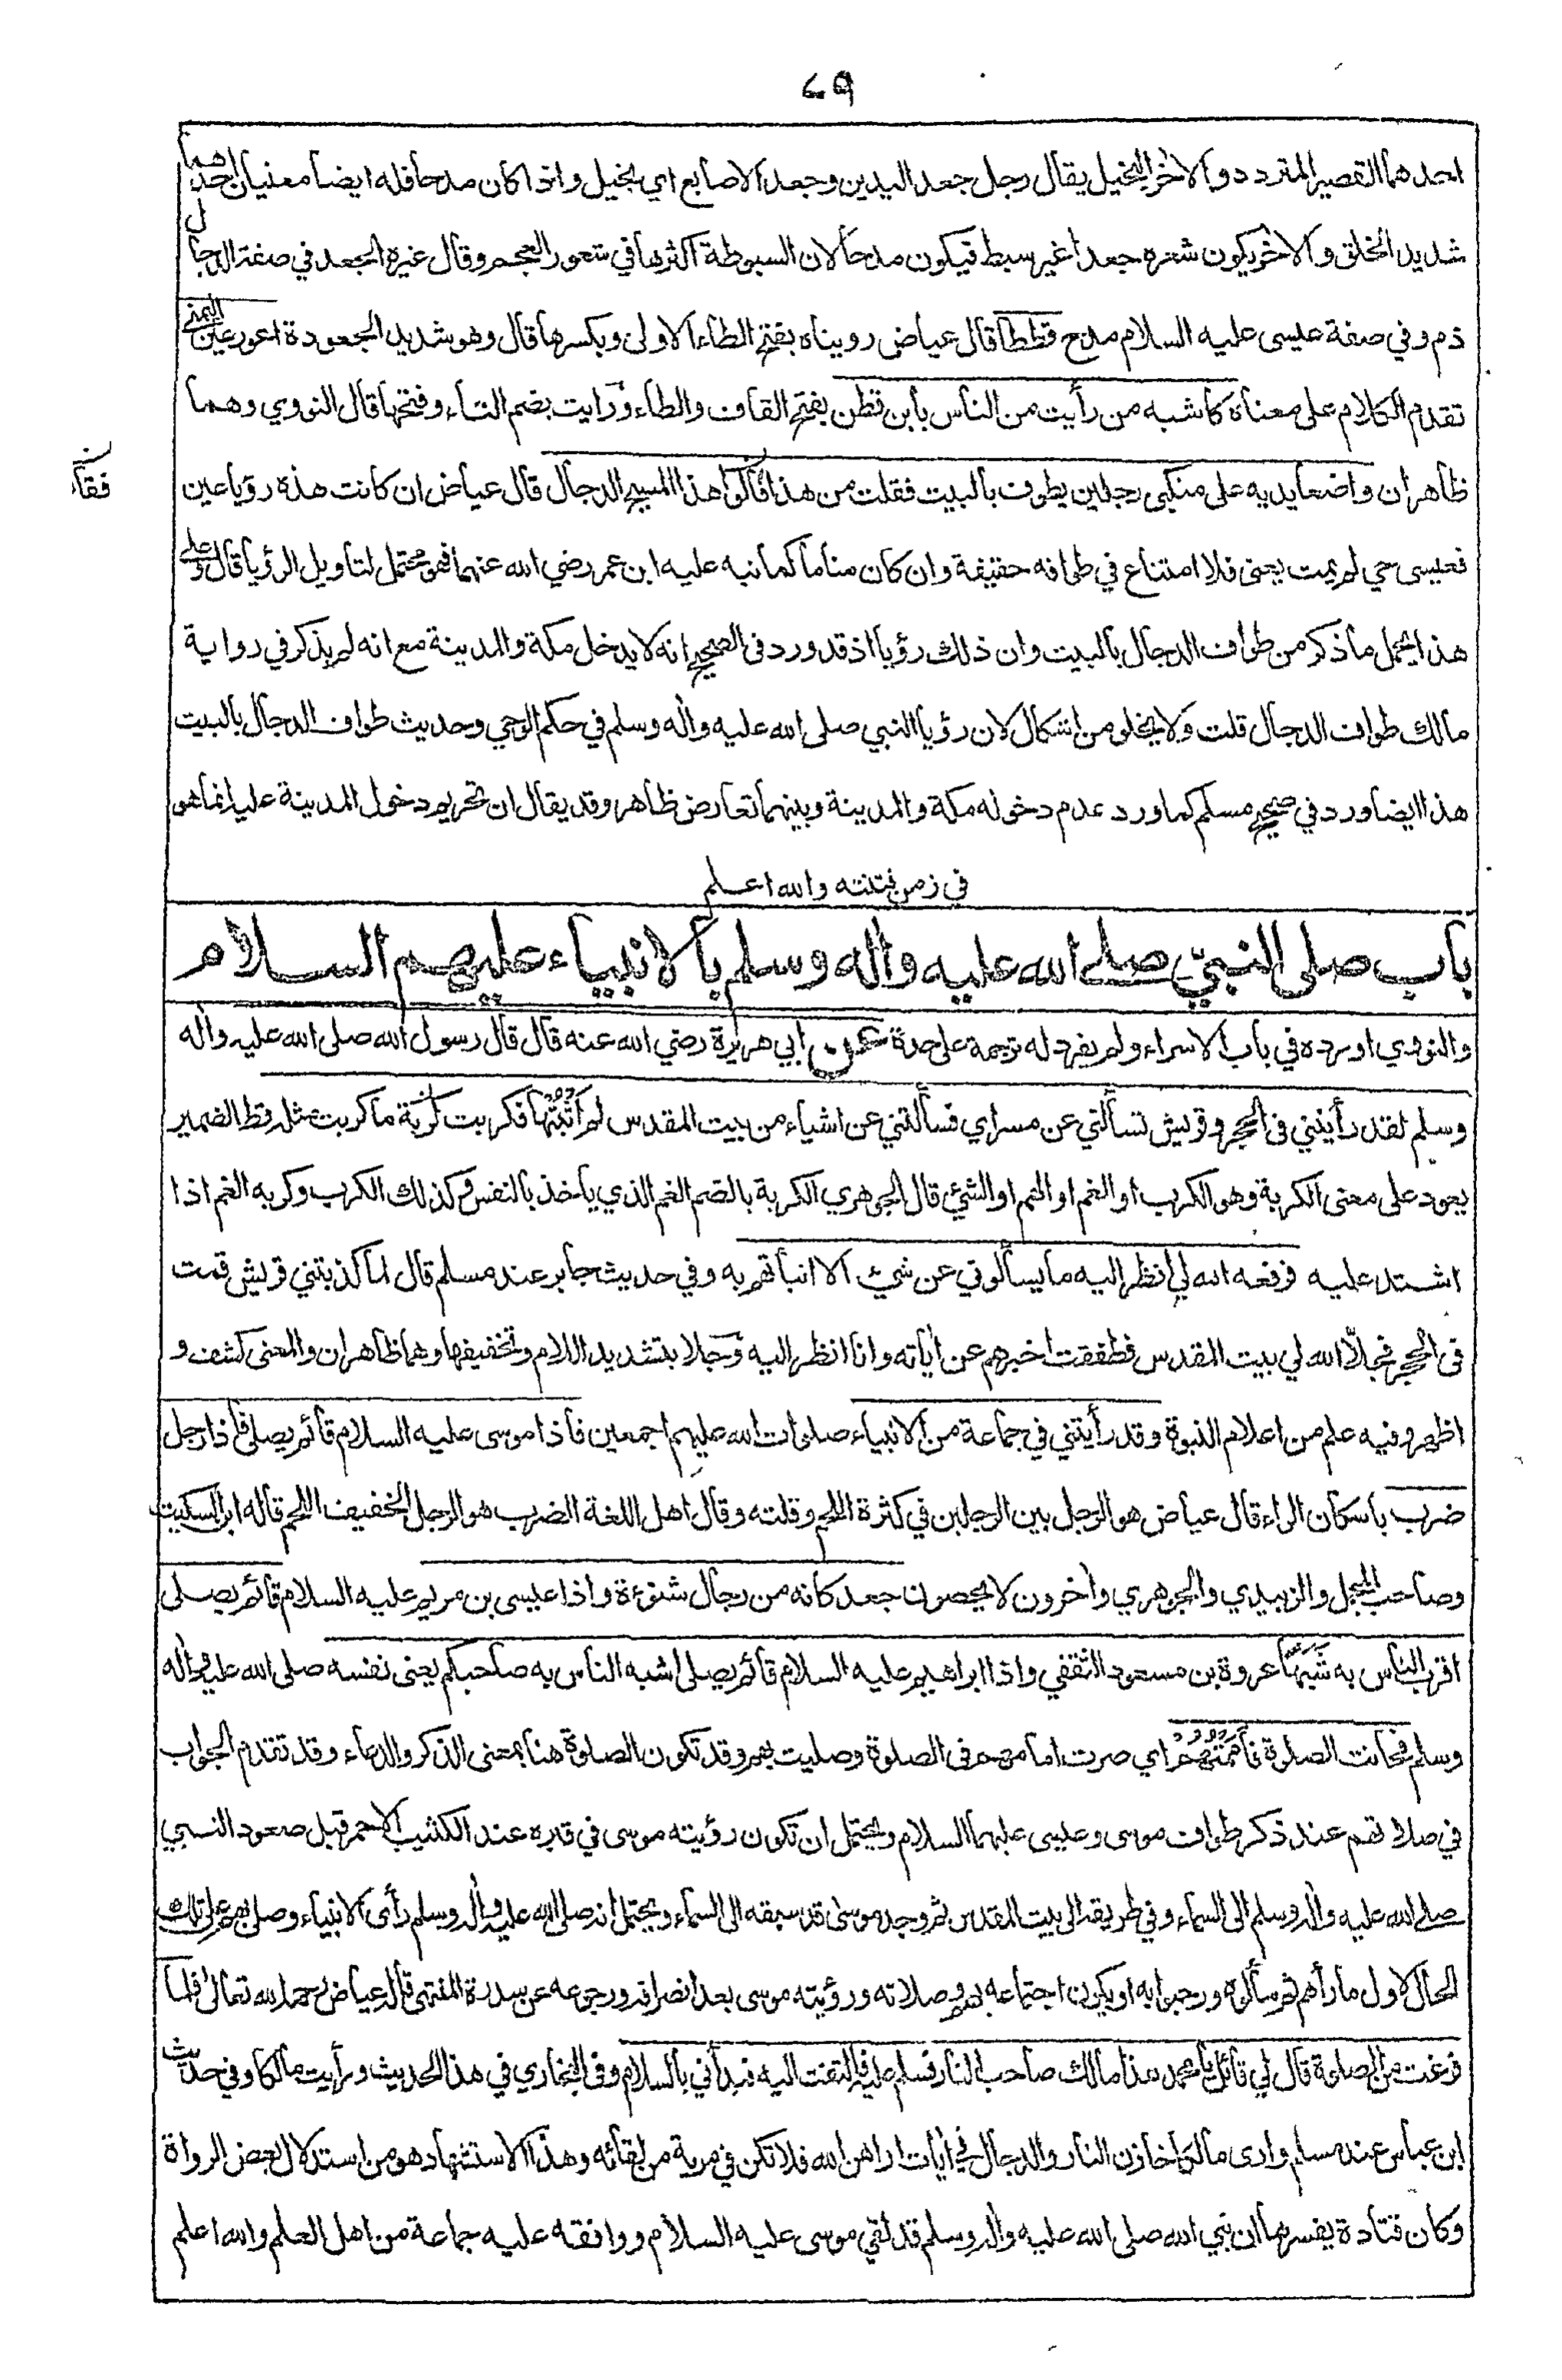 ٤٩
احدهما القصير المتردد والاخر البخيل يقال رجل جعد اليدين وجعد الاصابع اي بخيل واذا كان مدحا فله ايضا معنيان احدهما
شديد الخلق والاخر يكون شعره جعدا غير سبط فيكون مدحا لان السبوطة اكثرها في شعور العجم وقال غيره الجعد في صفة الدجال
ذم وفي صفة عيسى عليه السلام مدح قططا قال عياض رويناه بفتح الطاء الاولى وبكسرها قال وهو شديد الجعودة اعور عين اليمنى
تقدم الكلام على معناه كاشبه من رأيت من الناس بابن قطن بفتح القاف والطاء ورايت بضم التاء وفتحها قال النووي وهما
ظاهران واضعا يديه على منكبى رجلين يطوف بالبيت فقلت من هذا قالوا هذا المسيح الدجال قال عياض ان كانت هذه رؤيا عين
فقا
فعيسى حي لم يمت يعنى فلا امتناع في طوافه حقيقة وان كان مناما كما نبه عليه ابن عمر رضي الله عنهما فهو محتمل لتاويل الرؤيا قال وعلى
هذا يحمل ما ذكر من طواف الدجال بالبيت وان ذلك رؤيا اذ قد ورد فى الصحيح انه لا يدخل مكة والمدينة مع انه لم يذكر في رواية
مالك طواف الدجال قلت ولا يخلو من اشكال لان رؤيا النبي صلى الله عليه واله وسلم في حكم الوحي وحديث طواف الدجال بالبيت
هذا ايضا ورد في صحيح مسلم كما ورد عدم دخوله مكة والمدينة وبينهما تعارض ظاهر وقد يقال ان تحريم دخول المدينة عليه انما هو
في زمن فتنته والله اعلم
باب صلى النبيّ صلى الله عليه واله وسلم بالانبياء عليهم السلام
والنووي اورده في باب الاسراء ولم يفرد له ترجمة على حدة عن ابي هريرة رضي الله عنه قال قال رسول الله صلى الله عليه واله
وسلم لقد رأيتني فى الحجر وقريش تسألني عن مسراي فسألتني عن اشياء من بيت المقدس لم أثبتها فكربت كربة ما كربت مثله قط الضمير
يعود على معنى الكربة وهو الكرب او الغم او الهم او الشئ قال الجوهري الكربة بالضم الغم الذي ياخذ بالنفس وكذلك الكرب وكربه الغم اذا
اشتد عليه فرفعه الله لي انظر اليه ما يسألوني عن شئ الا انبأتهم به وفي حديث جابر عند مسلم قال لما كذبتني قريش قمت
فى الحجر فجلّا الله لي بيت المقدس فطفقت اخبرهم عن اياته وانا انظر اليه وجلا بتشديد اللام وتخفيفها وهما ظاهران والمعنى كشف و
اظهر وفيه علم من اعلام النبوة وقد رأيتني في جماعة من الانبياء صلوات الله عليهم اجمعين فاذا موسى عليه السلام قائم يصلى فاذا رجل
ضرب باسكان الراء قال عياض هو الرجل بين الرجلين في كثرة اللحم وقلته وقال اهل اللغة الضرب هو الرجل الخفيف اللحم قاله ابن السكيت
وصاحب المجمل والزبيدي والجوهري واخرون لا يحصون جعد كانه من رجال شنوءة واذا عيسى بن مريم عليه السلام قائم يصلى
اقرب الناس به شبها عروة بن مسعود الثقفي واذا ابراهيم عليه السلام قائم يصلى اشبه الناس به صاحبكم يعنى نفسه صلى الله عليه واله
وسلم فحانت الصلوة فأممتهم اي صرت امامهم فى الصلوة وصليت بهم وقد تكون الصلوة هنا بمعنى الذكر والدعاء وقد تقدم الجواب
في صلاتهم عند ذكر طواف موسى وعيسى عليهما السلام ويحتمل ان تكون رؤيته موسى في قبره عند الكثيب الاحمر قبل صعود النبي
صلى الله عليه واله وسلم الى السماء وفي طريقه الى بيت المقدس ثم وجد موسى قد سبقه الى السماء ويحتمل انه صلى الله عليه واله وسلم رأى الانبياء وصلى بهم على تلك
الحال لاول ما رأهم ثم سألوه ورحبوا به او يكون اجتماعه بهم وصلاته ورؤيته موسى بعد انصرافه ورجوعه عن سدرة المنتهى قاله عياض رحمه الله تعالى فلما
فرغت من الصلوة قال لي قائل يا محمد هذا مالك صاحب النار فسلم عليه فالتفت اليه فبدأني بالسلام وفى البخاري في هذا الحديث ورأيت مالكا وفي حديث
ابن عباس عند مسلم وارى مالكا خازن النار والدجال في ايات اراهن الله فلا تكن في مرية من لقائه وهذا الاستشهاد هو من استدلال بعض الرواة
وكان قتادة يفسرها ان نبي الله صلى الله عليه واله وسلم قد لقي موسى عليه السلام ووافقه عليه جماعة من اهل العلم والله اعلم